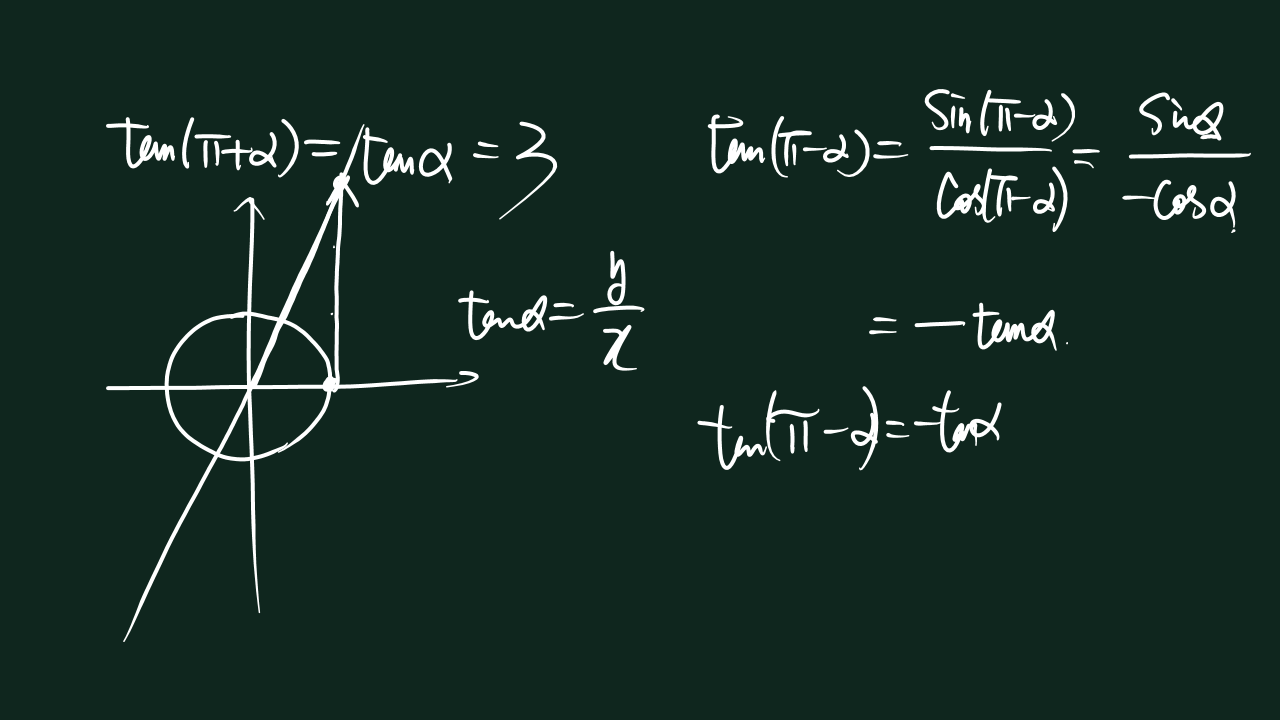 tan(π+α)=tanα=3
tanα=y/x
tan(π-α)=sin(π-α)/cos(π-α)=sinα/-cosα
=-tanα.
tan(π-α)=-tanα